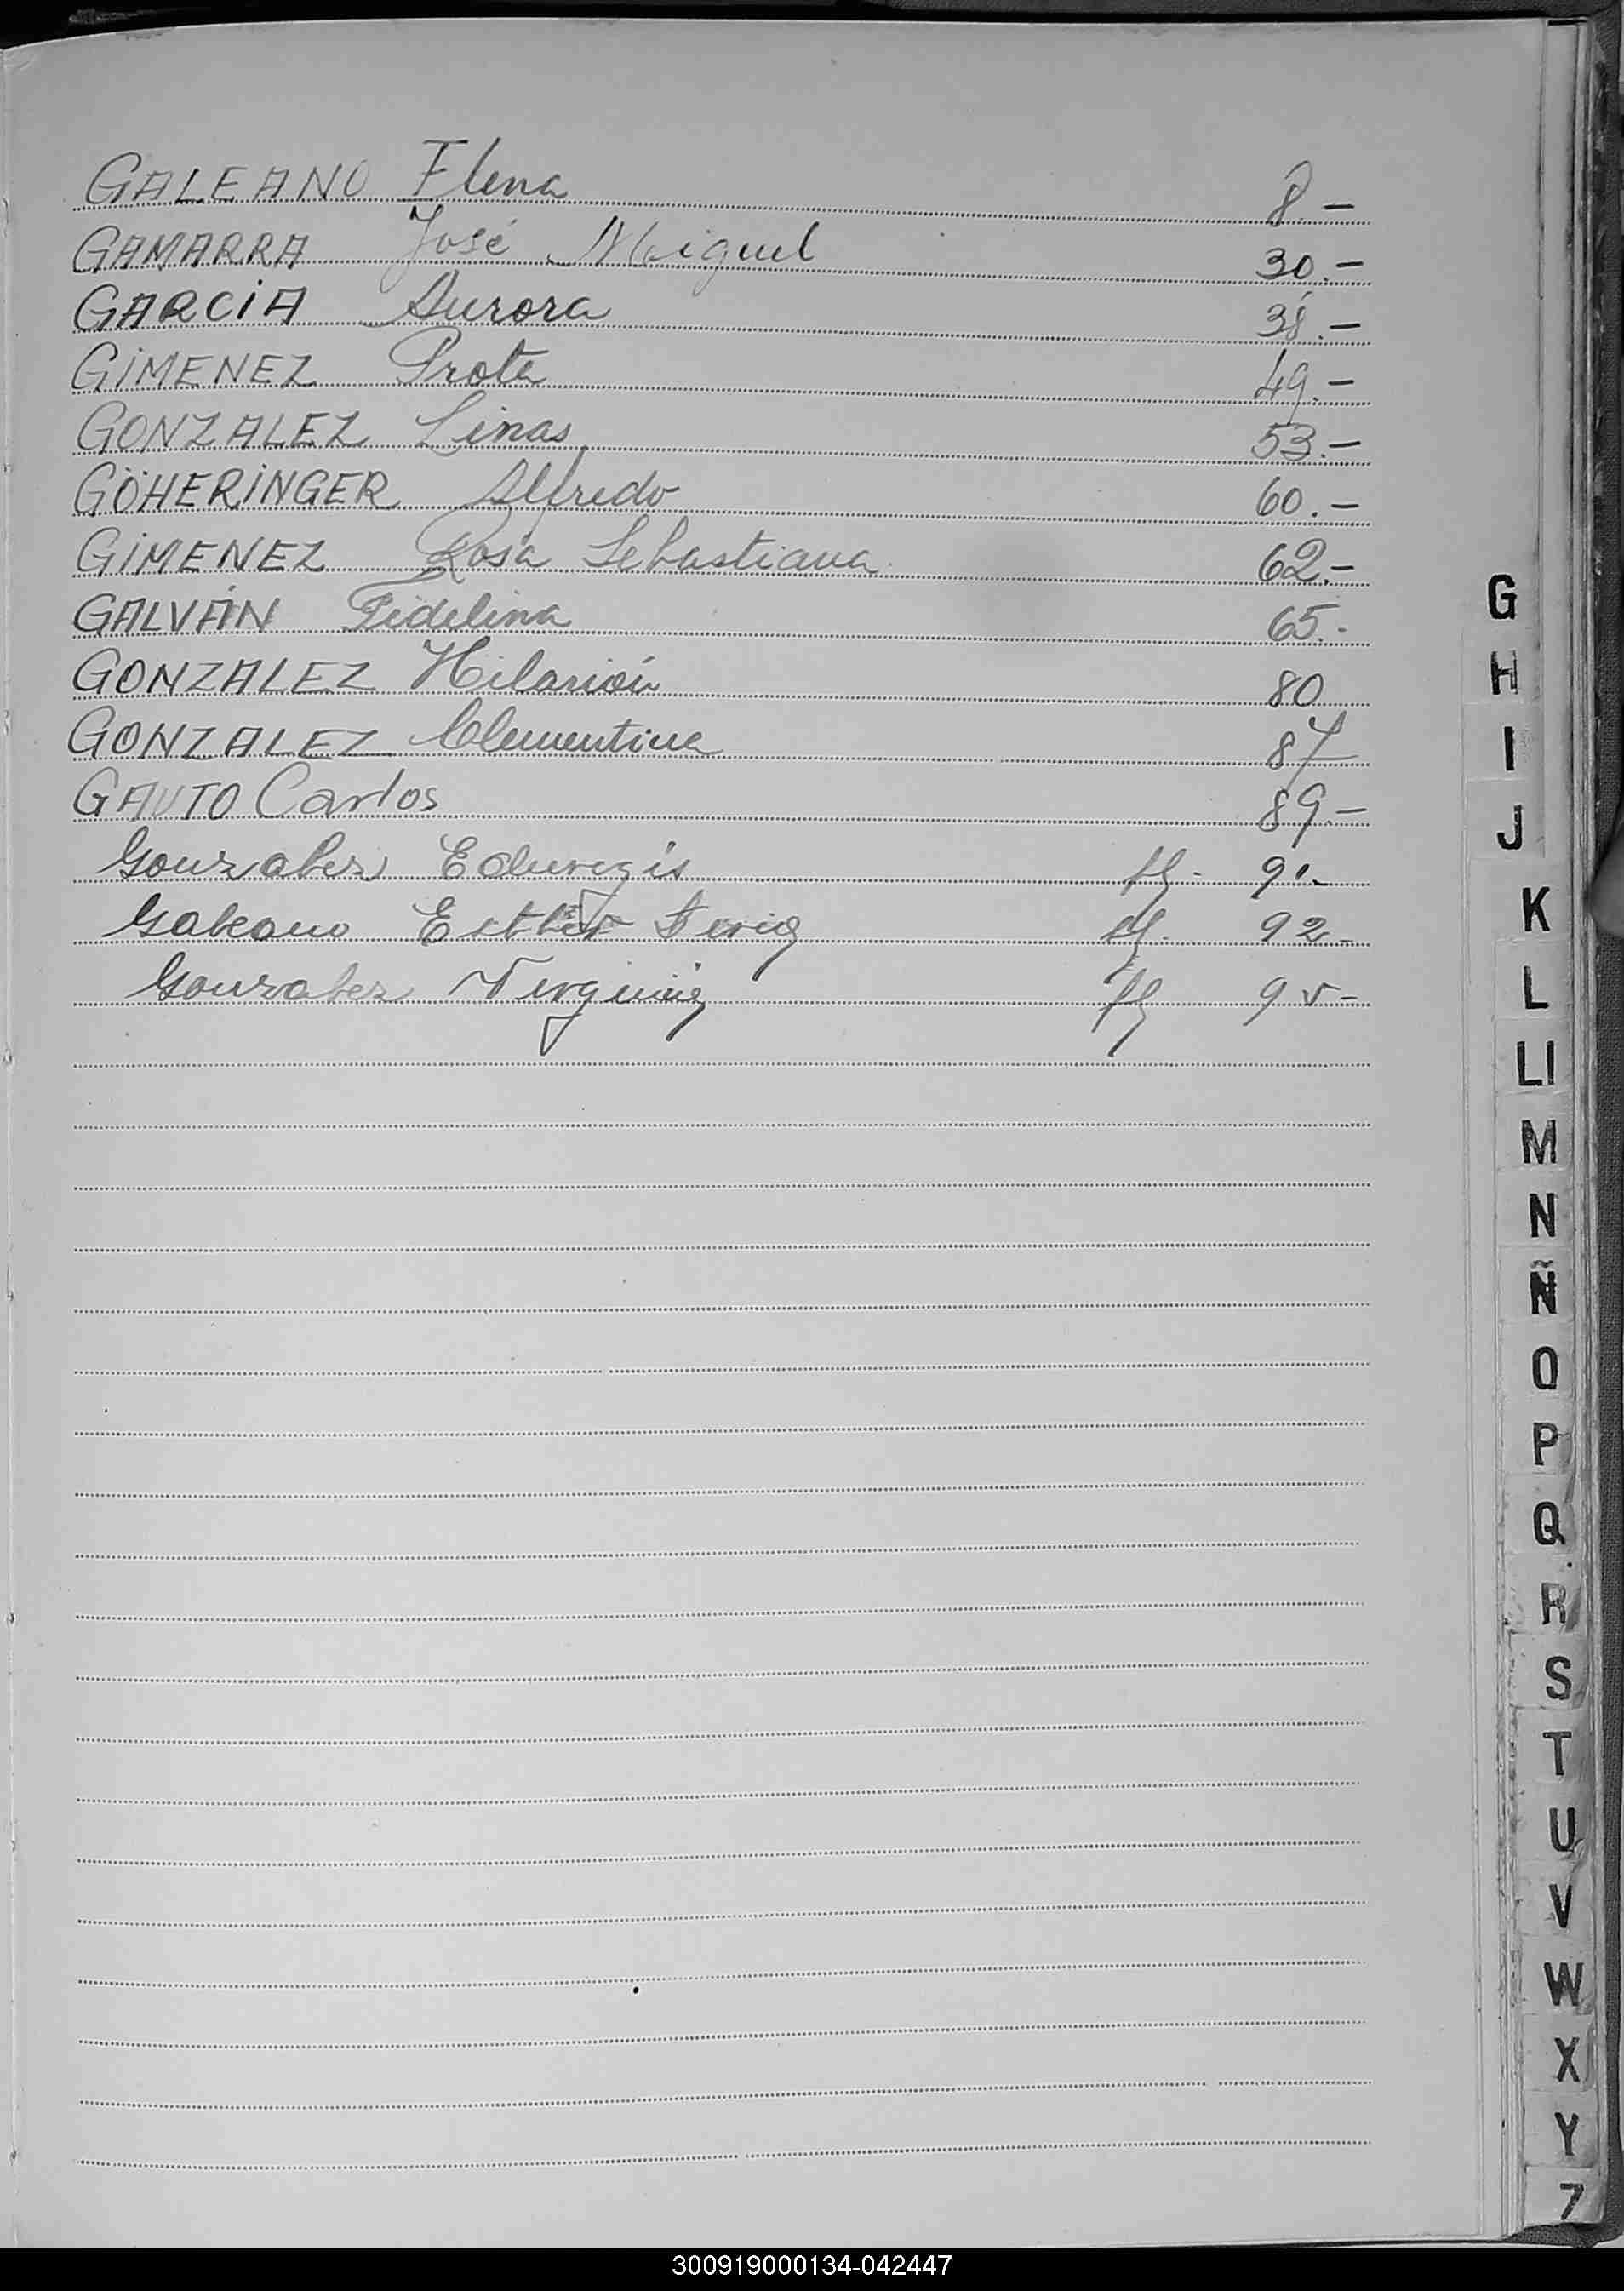 GALEANO Elena 8.-
GAMARRA José Miguel 30.-
GARCÍA Aurora 38.-
GIMENEZ Prota 49.-
GONZALEZ Linas 53.-
GÖHERINGER Alfredo 60.-
GIMENEZ Rosa Sebastiana 62.-
GALVÁN Fidelina 65.-
GONZALEZ Hilarión 80
GONZALEZ Clementina 87
GAUTO Carlos 89.-
Gonzalez Eduvegis 91.-
Galeano Esther 92-
Gonzalez Virginia 95-
G
H
I
J
K
L
Ll
M
N
Ñ
O
P
Q
R
S
T
U
V
W
X
Y
Z
300919000134-042447